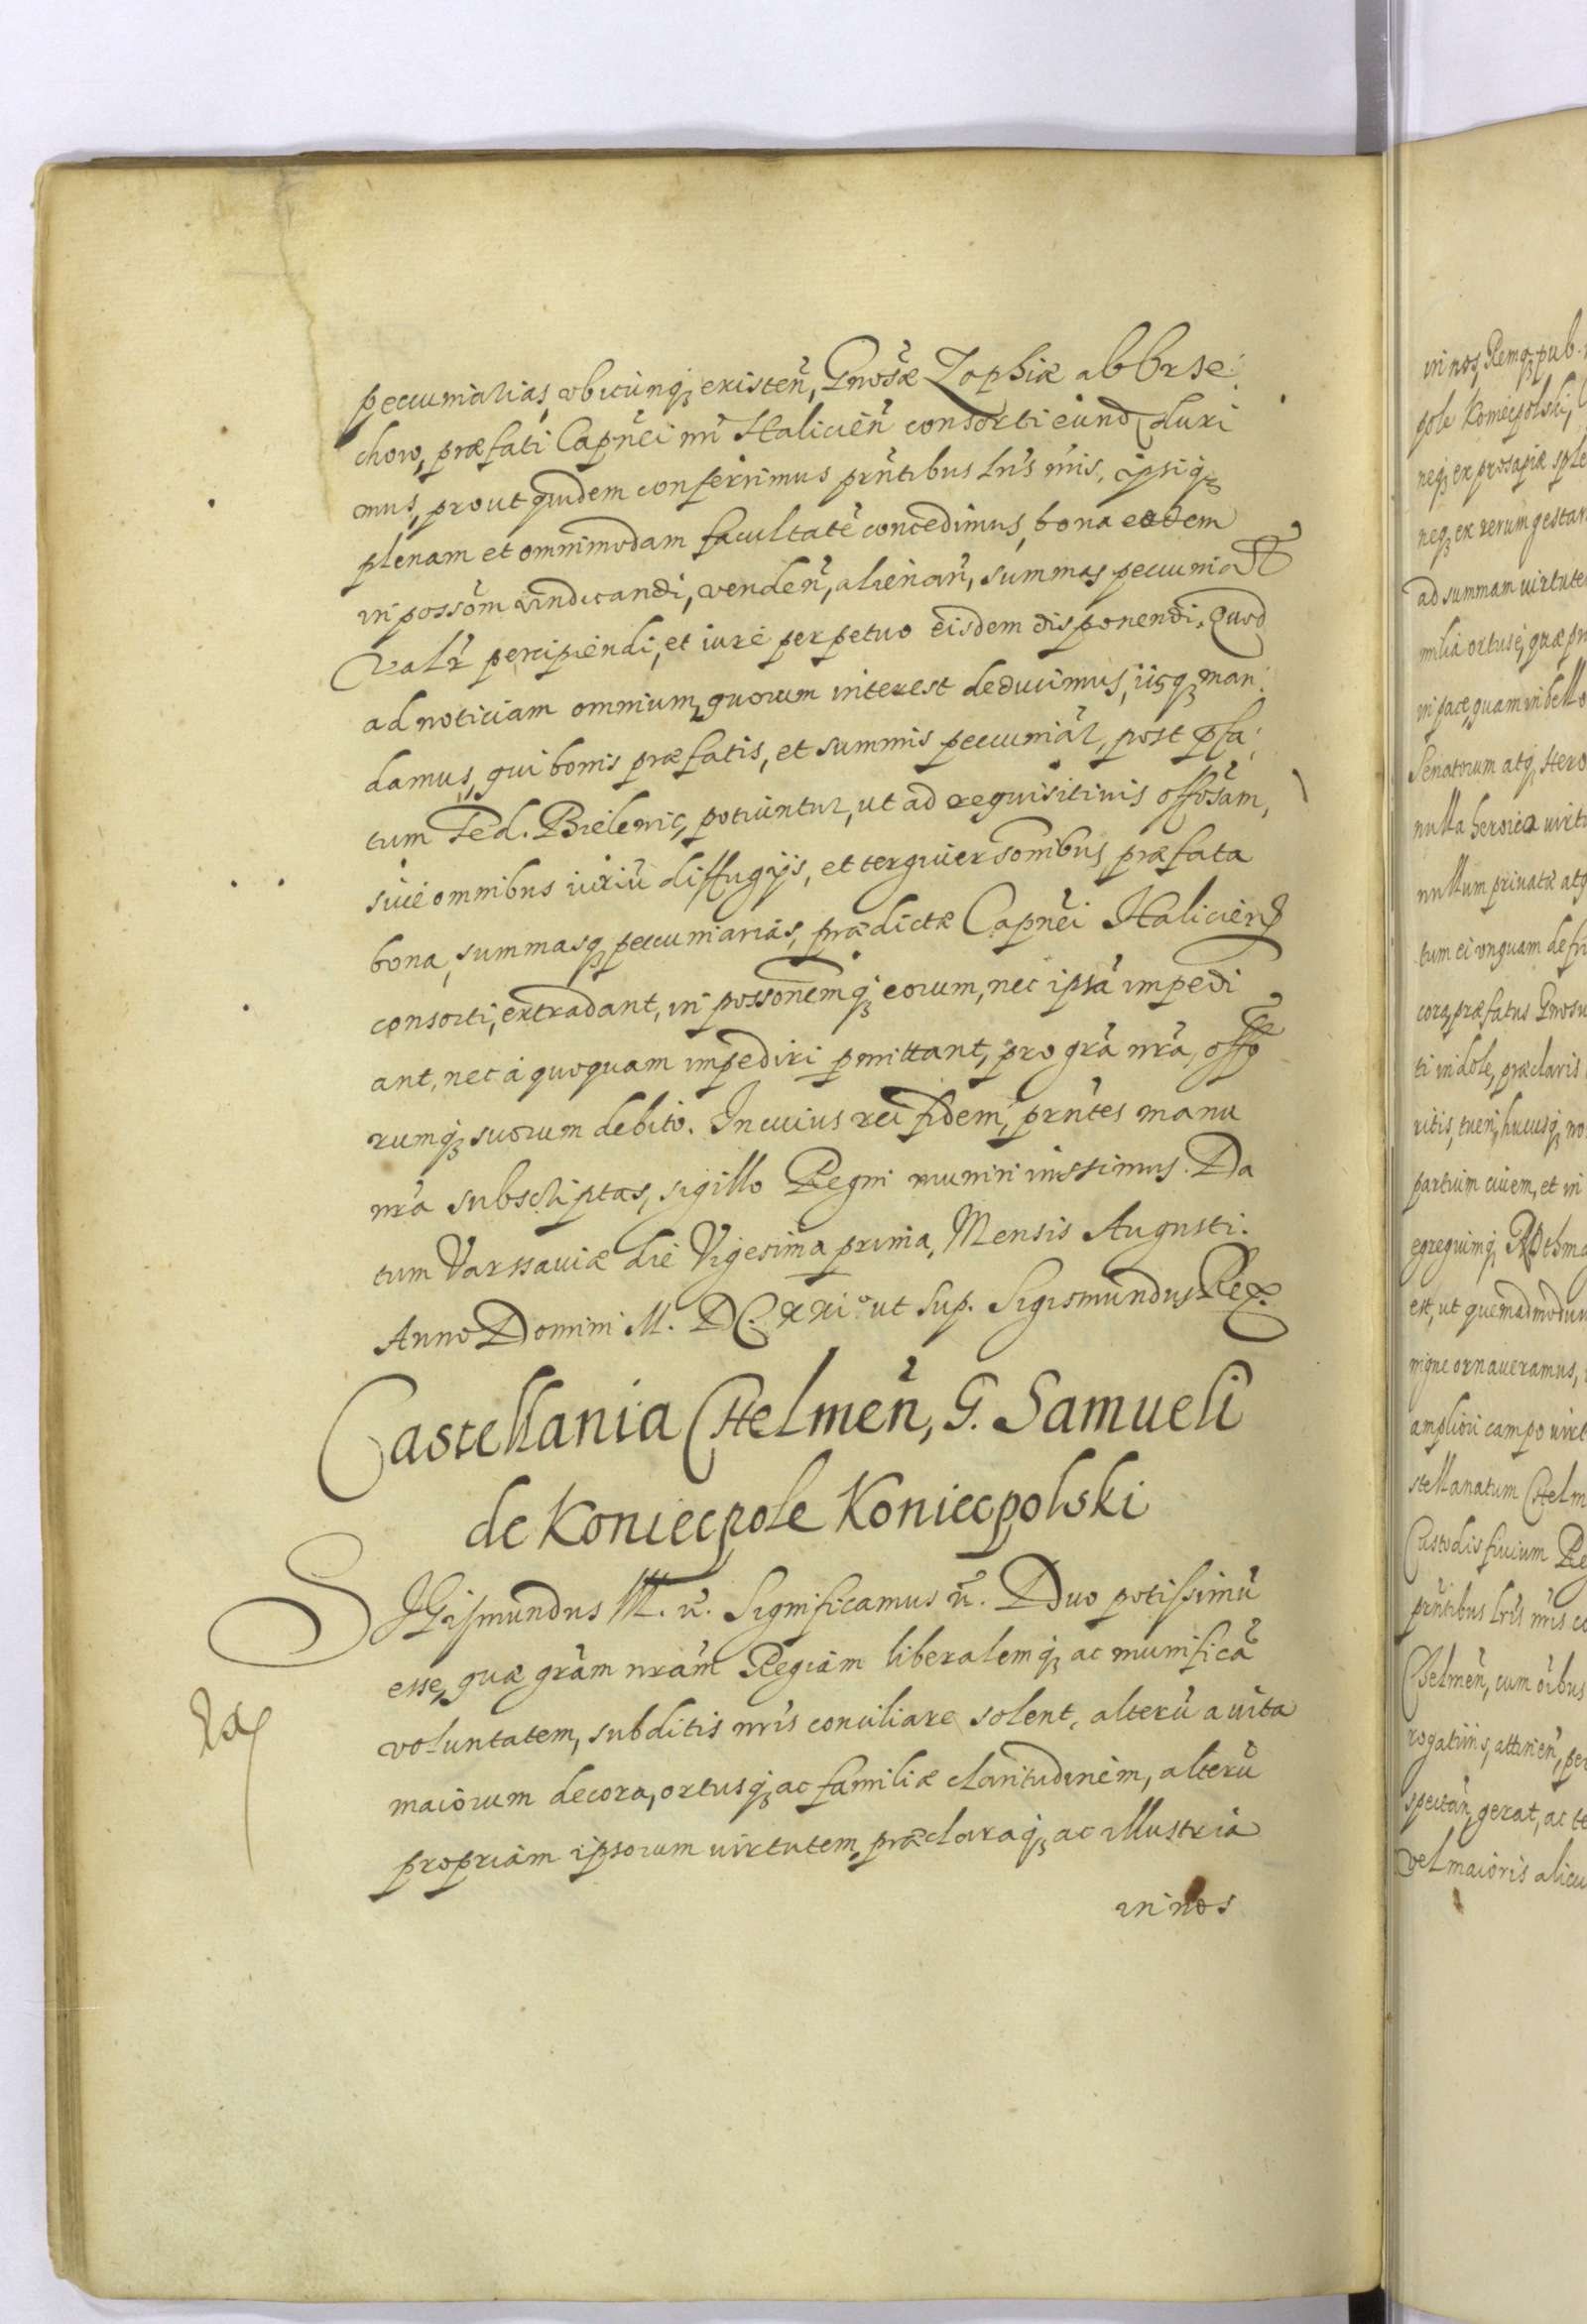 peccuniarias, vbicunq́ʒ existeñ, Gnosæ Zophiæ ab Brse:
chow, præfati Capnei nri Halicieñ consorti eund duxi
mus, prout quidem conferimus prntibus lris nris, ipsiqʒ
plenam et omnimodam facultatē concedimus, bona eadem
in possom vindicandi, vendeñ, alienañ, summas pecunia
valr percipiendi, et iure perpetuo eisdem disponendi. Quod
ad noticiam omnium, quorum interest deducimus, iisqʒ man:
damus, qui bonis præfatis, et summis peccuniar, post pfa:
tum Fed. Bielewic, potiuntur, ut ad requisitinis offosam,
sine omnibus iuriū diffugijs, et terguiersonibus præfata
bona, summasqʒ peccuniarias, prædictæ Capnei Halicień
consorti, extradant, in possonemqʒ eorum, nec ipsā impedi
ant, nec á quoquam impediri pmittant, pro gra nra, offo
rumqʒ suorum debito. In cuius rei fidem, prntes manu
nra subscriptas, sigillo Regni muniri iussimus. Da
tum Varssauiæ die Vigesima prima, Mensis Augusti.
Anno Domini M. DC. XXI° ut sup. Sigismundus Rex.
Castellania Chelmeñ, G. Samueli
de Koniecpole Koniecpolski
SIGismundus III. &. Significamus &. Duo potissimū
esse, quæ gram nram Regiam liberalemqʒ ac munificā
voluntatem, subditis nris conciliare solent, alterū auita
maiorum decora, ortusqʒ ac familiæ claritudinem, alterū
propriam ipsorum uirtutem, præclaraqʒ ac illustria
in nos
in nos, Remqʒ pub.
pole Koniecpolski,
neqʒ ex prosapiæ sple
neqʒ ex rerum gestar
ad summam uirtute
milia ortus ē, quæ
in pace, quam in bello
Senatorum atqʒ Hero
nulla heroica uirt
nullum priuatæ atq
tum ei vnquam defu
cora, præfatus Gnosu
ti indole, præclaris
ritis, tueñ, hucusqʒ no
partium ciuem, et in
egregiumqʒ
est, ut quemadmodum
nigne ornaueramus,
ampliori campo uirt
stellanatum Chelm
Custodis finium Re
prntibus lris nris co
Chelmeñ, cum oibus
rogatiuis, attineñ, per
spectañ, gerat, ac te
vel maioris alicu